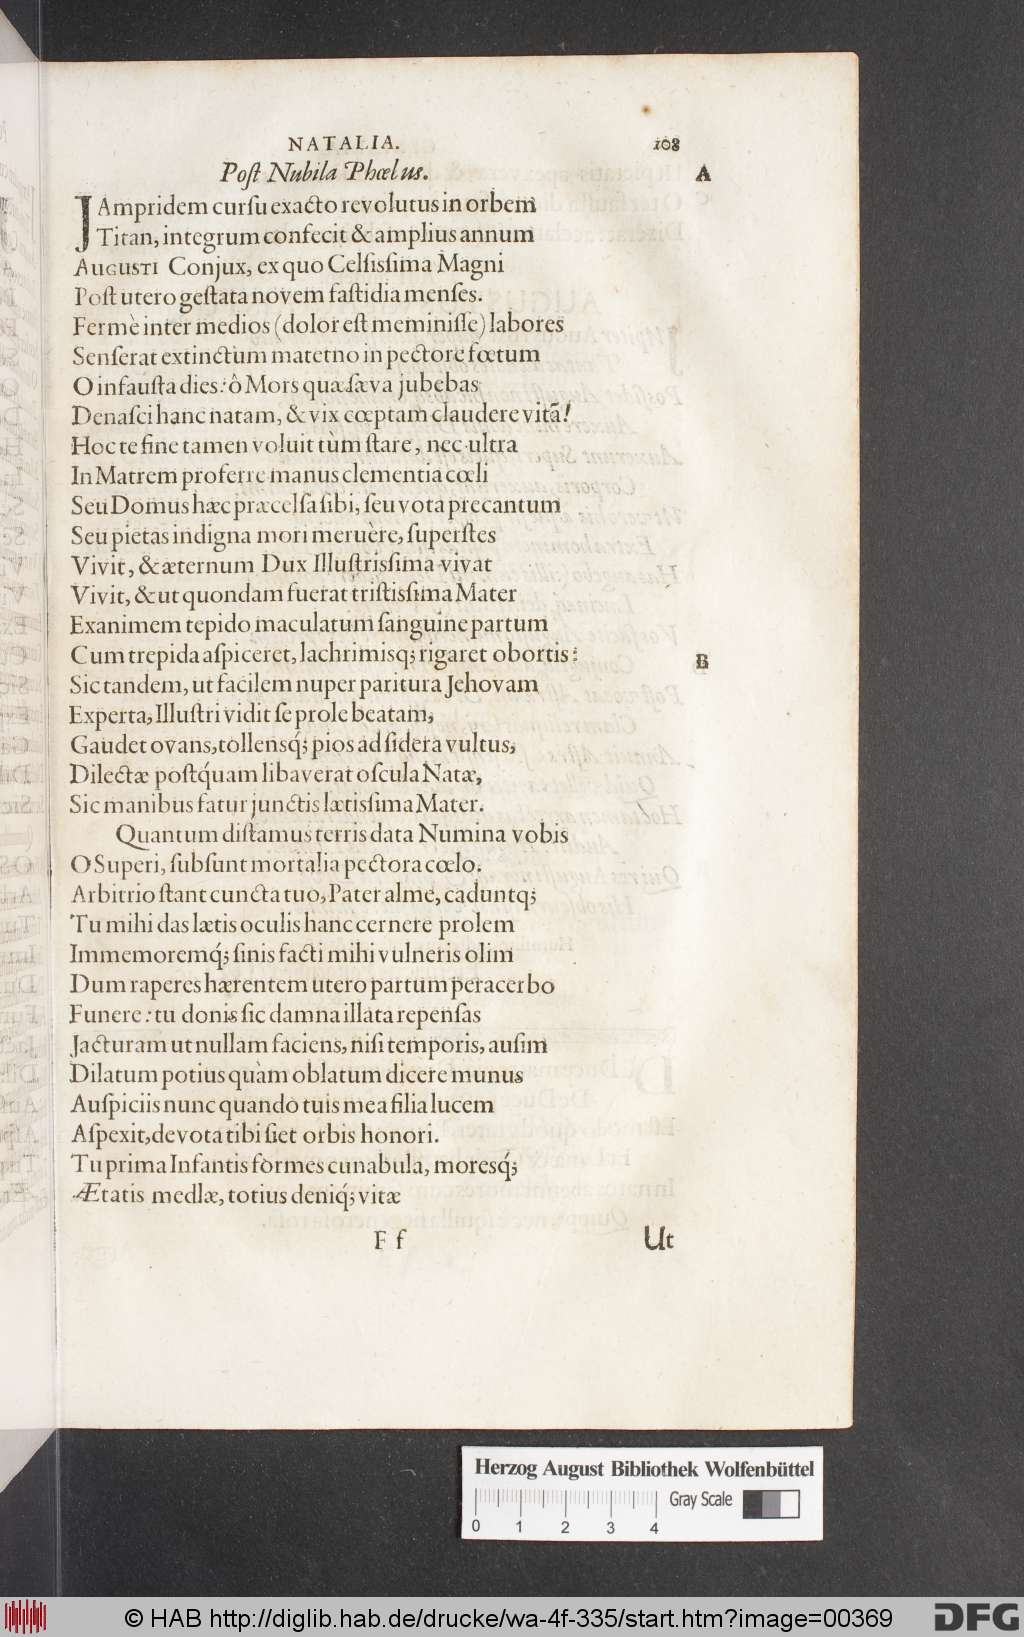 NATALIA. 108
Post Nubila Phœbus. A
JAmpridem cursu exacto revolutus in orbem
Titan, integrum confecit & amplius annum
AUGUSTI Conjux, ex quo Celsissima Magni
Post utero gestata novem fastidia menses.
Fermè inter medios (dolor est meminisse) labores
Senserat extinctum materno in pectore fœtum
O infausta dies: ô Mors quæ sæva jubebas
Denasci hanc natam, & vix cœptam claudere vitã!
Hoc te fine tamen voluit tùm stare, nec ultra
In Matrem proferre manus clementia cœli
Seu Domus hæc præcelsa sibi, seu vota precantum
Seu pietas indigna mori meruère, superstes
Vivit, & æternum Dux Illustrissima vivat
Vivit, & ut quondam fuerat tristissima Mater
Exanimem tepido maculatum sanguine partum
Cum trepida aspiceret, lachrimisq; rigaret obortis: B
Sic tandem, ut facilem nuper paritura Jehovam
Experta, Illustri vidit se prole beatam,
Gaudet ovans, tollensq́; pios ad sidera vultus,
Dilectæ postq́uam libaverat oscula Natæ,
Sic manibus fatur junctis lætissima Mater.
Quantum distamus terris data Numina vobis
O Superi, subsunt mortalia pectora cœlo.
Arbitrio stant cuncta tuo, Pater alme, caduntq;
Tu mihi das lætis oculis hanc cernere prolem
Immemoremq́; sinis facti mihi vulneris olim
Dum raperes hærentem utero partum peracerbo
Funere: tu donis sic damna illata repensas
Jacturam ut nullam faciens, nisi temporis, ausim
Dilatum potius quàm oblatum dicere munus
Auspiciis nunc quando tuis mea filia lucem
Aspexit, devota tibi siet orbis honori.
Tu prima Infantis formes cunabula, moresq́;
Ætatis mediæ, totius deniq́; vitæ
F f Ut
Herzog August Bibliothek Wolfenbüttel
Gray Scale
0 1 2 3 4
© HAB http://diglib.hab.de/drucke/wa-4f-335/start.htm?image=00369 DFG